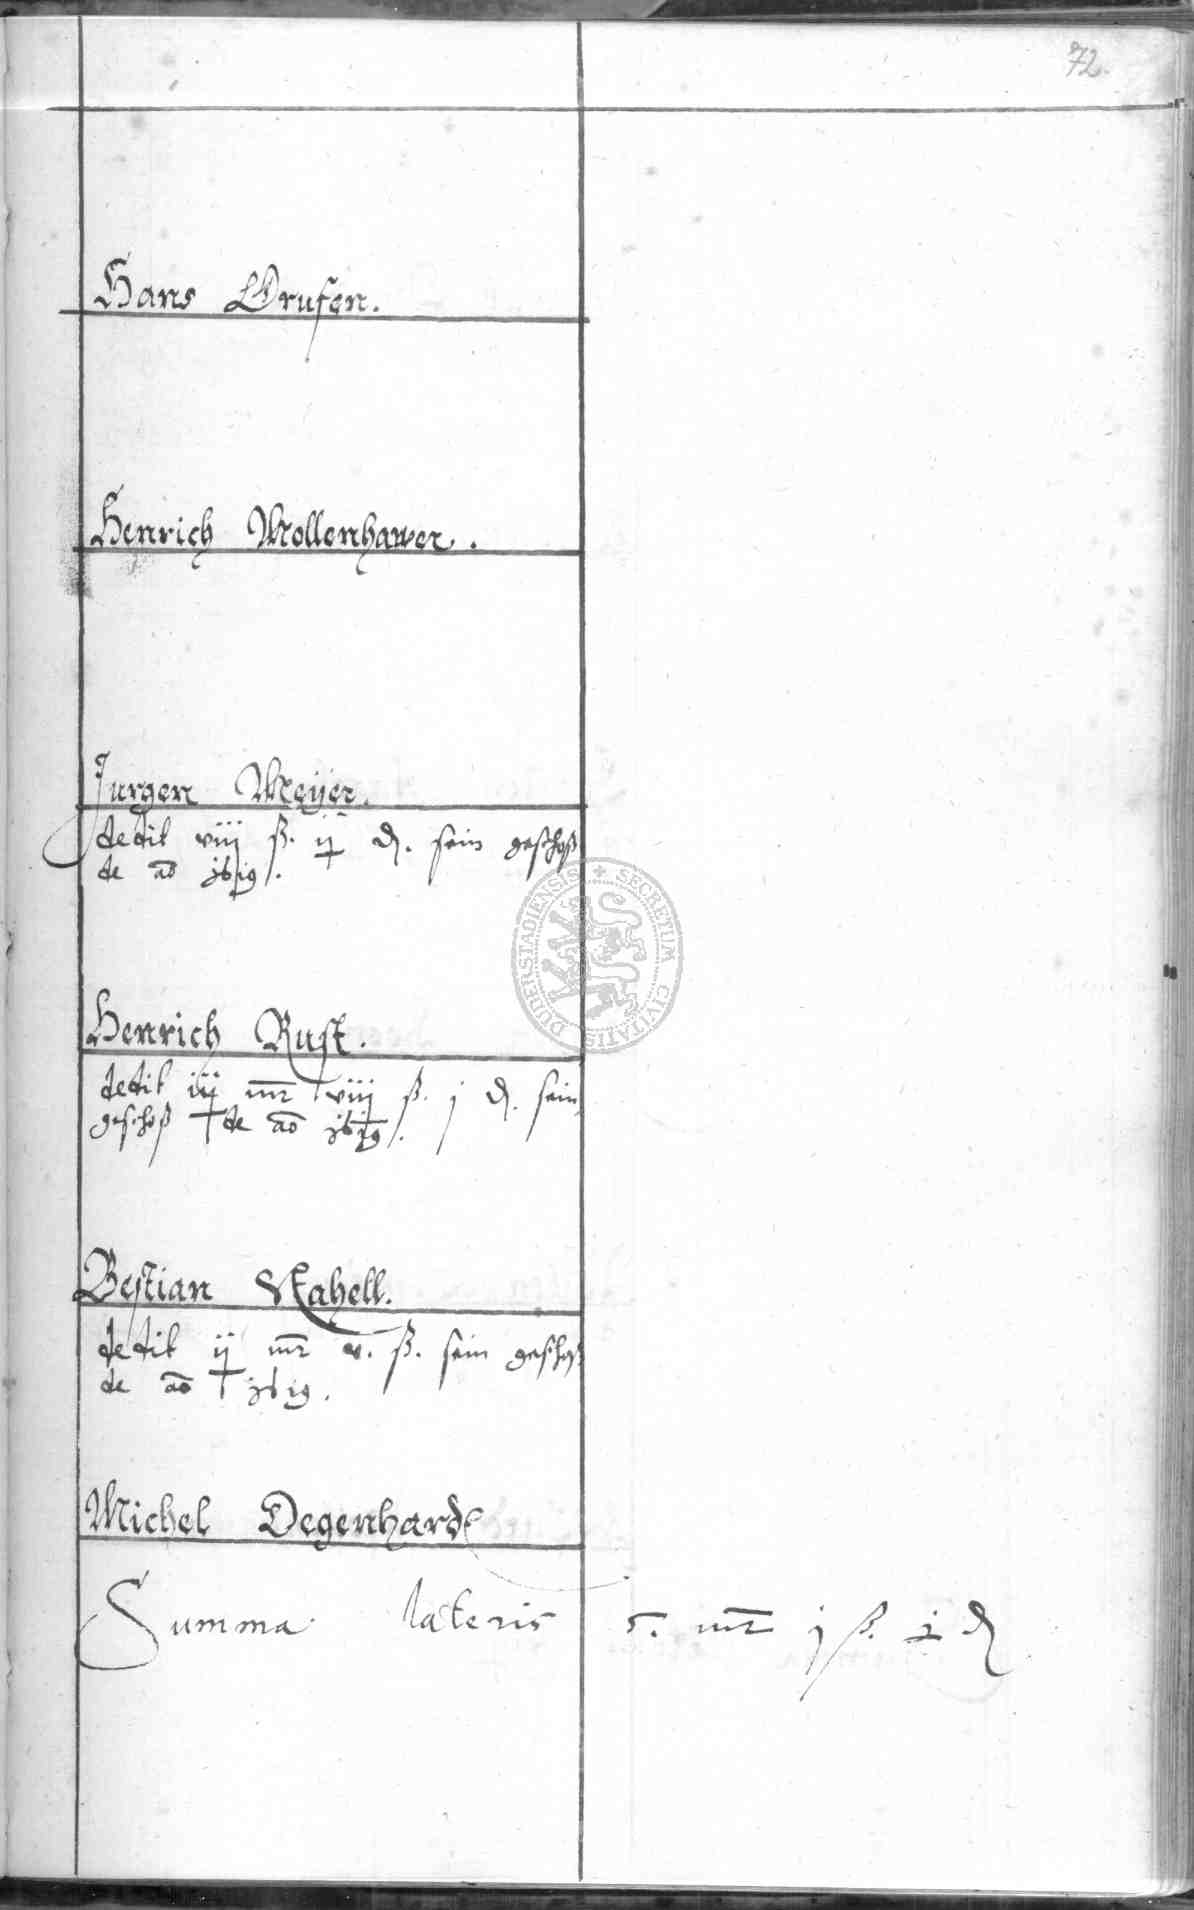 72.
Hans Drusen.
Henrich Mollenhawer.
Jurgen Meÿer.
dedit viij ß. ij d. sein geschoß
de ao 1619.
SECRETUM CIVITATIS DUDERSTADIENSIS
Henrich Rust.
dedit iij mr viij ß. j d. sein
geschoß de ao 1619.
Bestian Stahell.
dedit ij mr v. ß. sein geschoß
de ao 1619.
Michel Degenhardt
Summa lateris 5. mr j ß. d